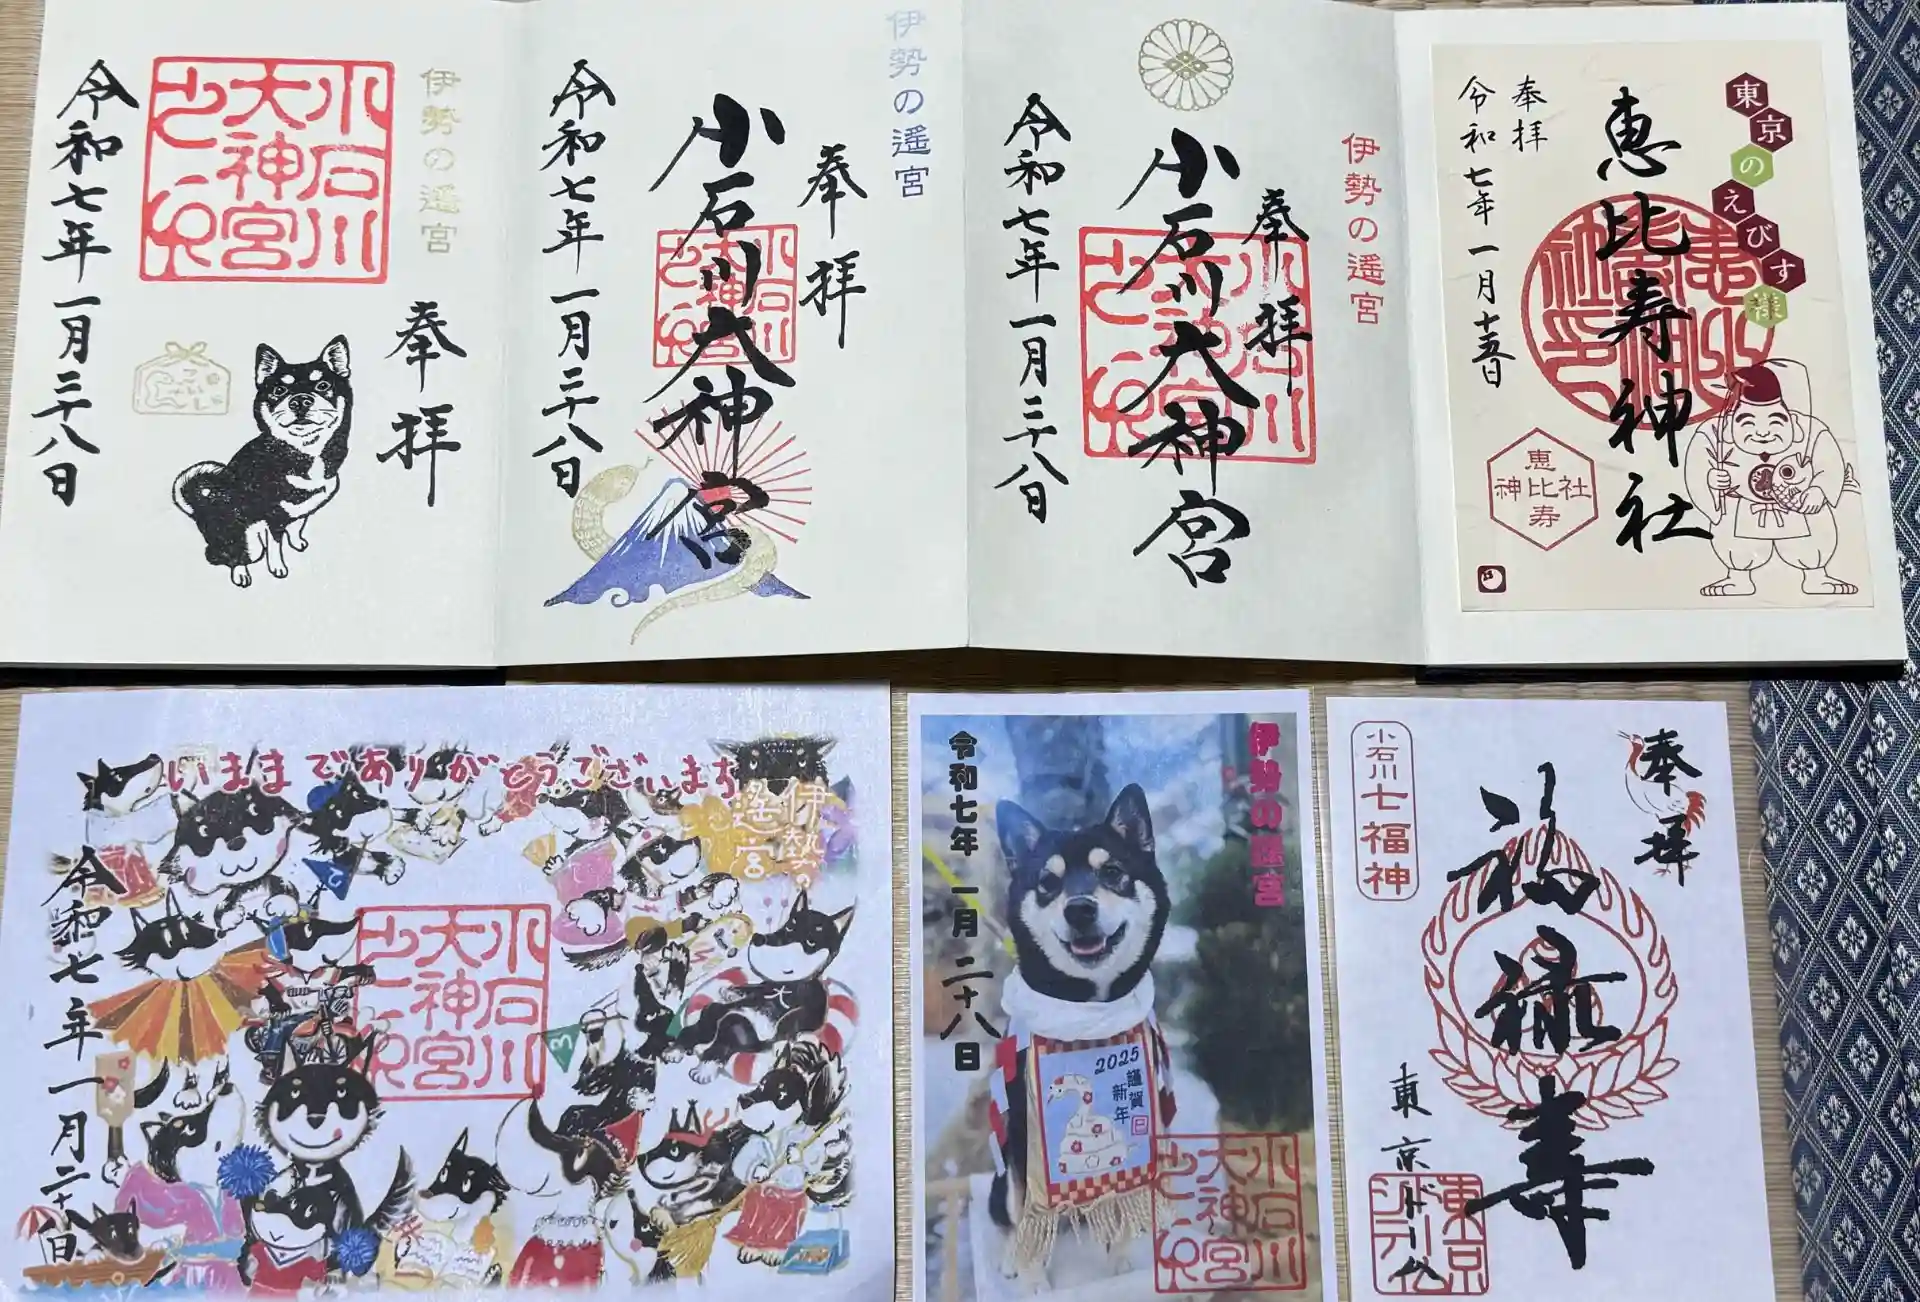 伊勢の遥宮
奉拝
小石川
大神宮
令和七年一月二十八日
伊勢の遥宮
奉拝
小石川大神宮
小石川
大神宮
令和七年一月二十八日
伊勢の遥宮
奉拝
小石川大神宮
令和七年一月二十八日
東京のえびす様
恵比寿神社
奉拝
令和七年一月十五日
恵比寿神社
いままでありがとうございます
伊勢の
遥宮
小石川
大神宮
令和七年一月二十八日
伊勢の遥宮
令和七年一月二十八日
2025
謹賀
新年
巳
小石川
大神宮
奉拝
小石川七福神
福禄寿
東京ドーム
東京